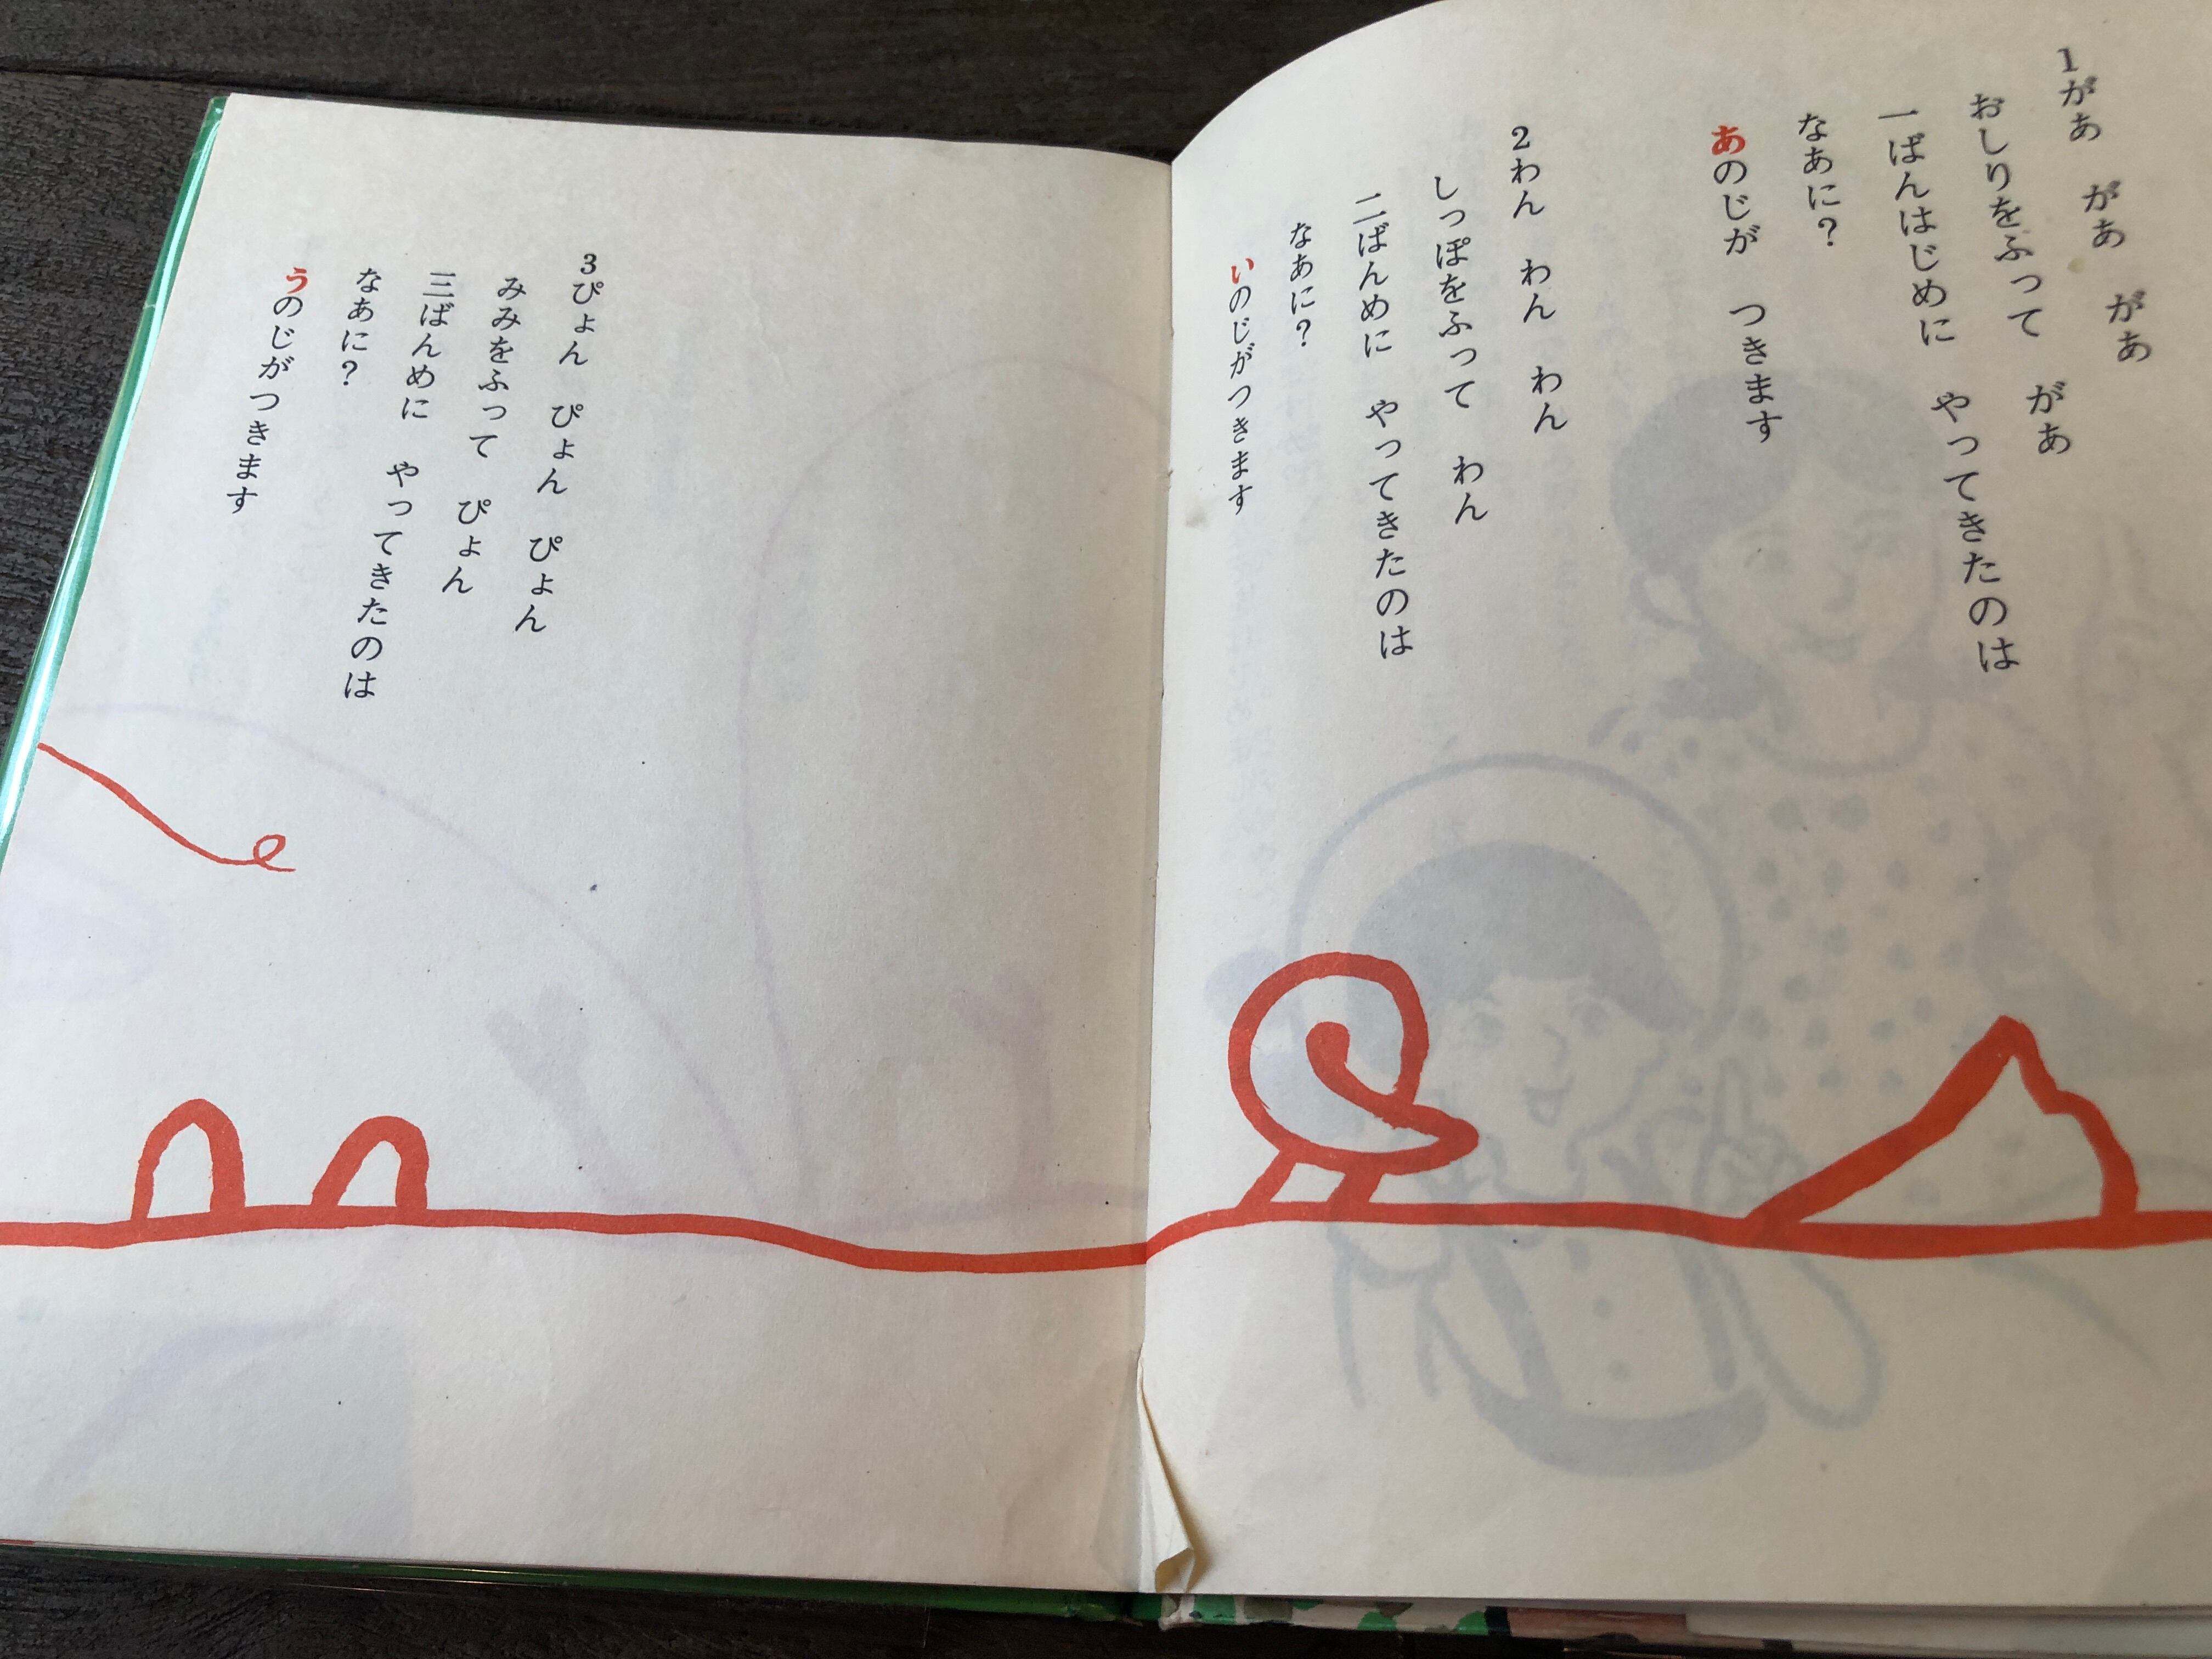 1があ　があ　があ
おしりをふって　があ
一ばんはじめに　やってきたのは
なあに？
あのじが　つきます
2わん　わん　わん
しっぽをふって　わん
二ばんめに　やってきたのは
なあに？
いのじがつきます
3ぴょん　ぴょん　ぴょん
みみをふって　ぴょん
三ばんめに　やってきたのは
なあに？
うのじがつきます